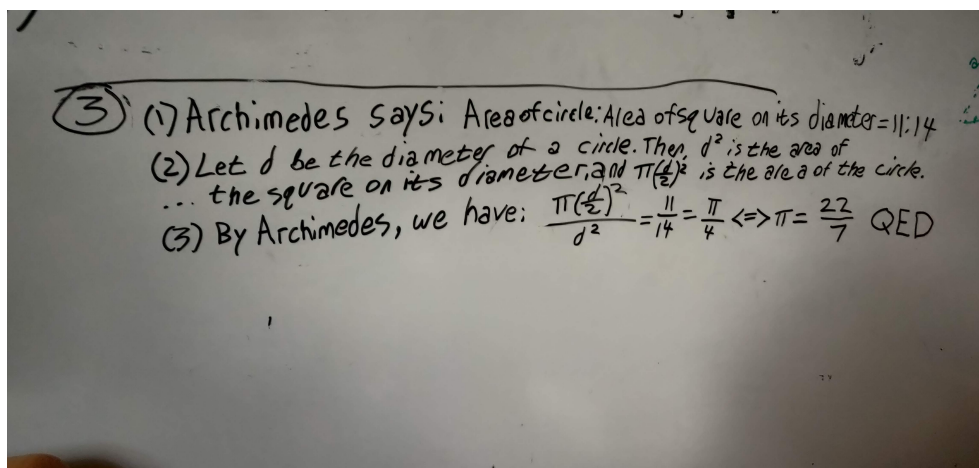 ③ (1) Archimedes says: Area of circle: Area of square on its diameter = 11:14
(2) Let d be the diameter of a circle. Then, d² is the area of
... the square on its diameter, and π(d/2)² is the area of the circle.
(3) By Archimedes, we have: π(d/2)²/d² = 11/14 = π/4 <=> π = 22/7 QED